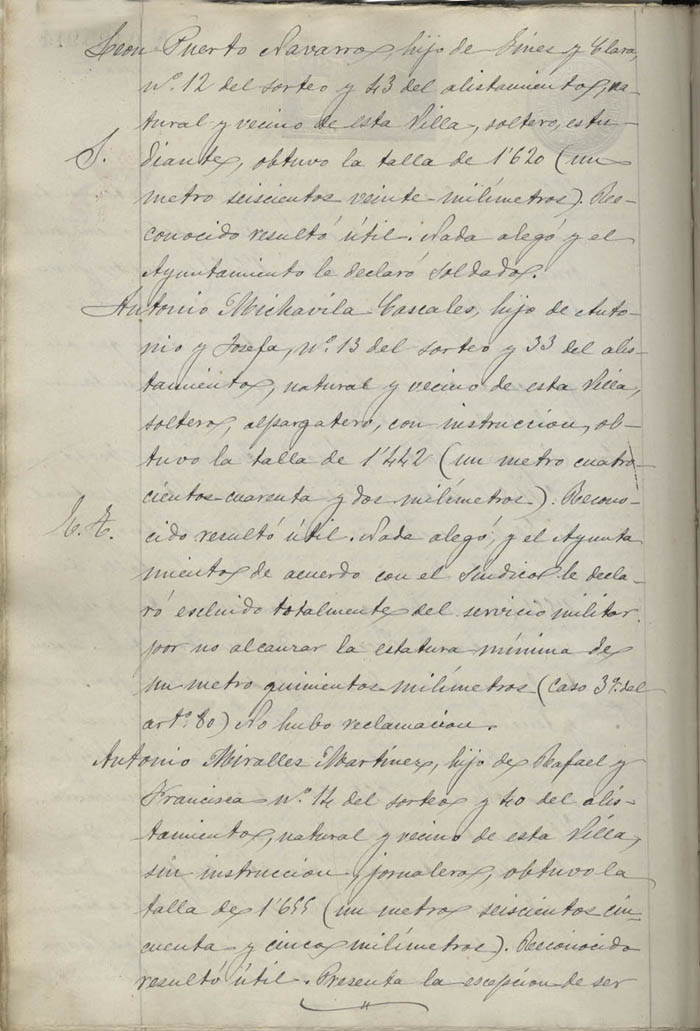 Leon Puerto Navarro, hijo de Gines y Clara,
nº. 12 del sorteo y 43 del alistamiento, na-
tural y vecino de esta Villa, soltero, estu-
S. diante, obtuvo la talla de 1'620 (un
metro seiscientos veinte milímetros). Re-
conocido resultó útil. Nada alegó y el
Ayuntamiento le declaró soldado.
Antonio Michavila Cascales, hijo de Anto-
nio y Josefa, nº. 13 del sorteo y 33 del alis-
tamiento, natural y vecino de esta Villa,
soltero, alpargatero, con instruccion, ob-
tuvo la talla de 1'442 (un metro cuatro-
cientos cuarenta y dos milímetros). Recono-
cido resultó útil. Nada alegó, y el Ayunta
miento de acuerdo con el Sindico le decla-
ró escluido totalmente del servicio militar
por no alcanzar la estatura mínima de
un metro quinientos milímetros (caso 3º. del
artº. 80) No hubo reclamacion.
Antonio Miralles Martínez, hijo de Rafael y
Francisca nº. 14 del sorteo y 40 del alis-
tamiento, natural y vecino de esta Villa,
sin instruccion, jornalero, obtuvo la
talla de 1'655 (un metro seiscientos cin-
cuenta y cinco milímetros). Reconocido
resultó útil. Presenta la escepcion de ser